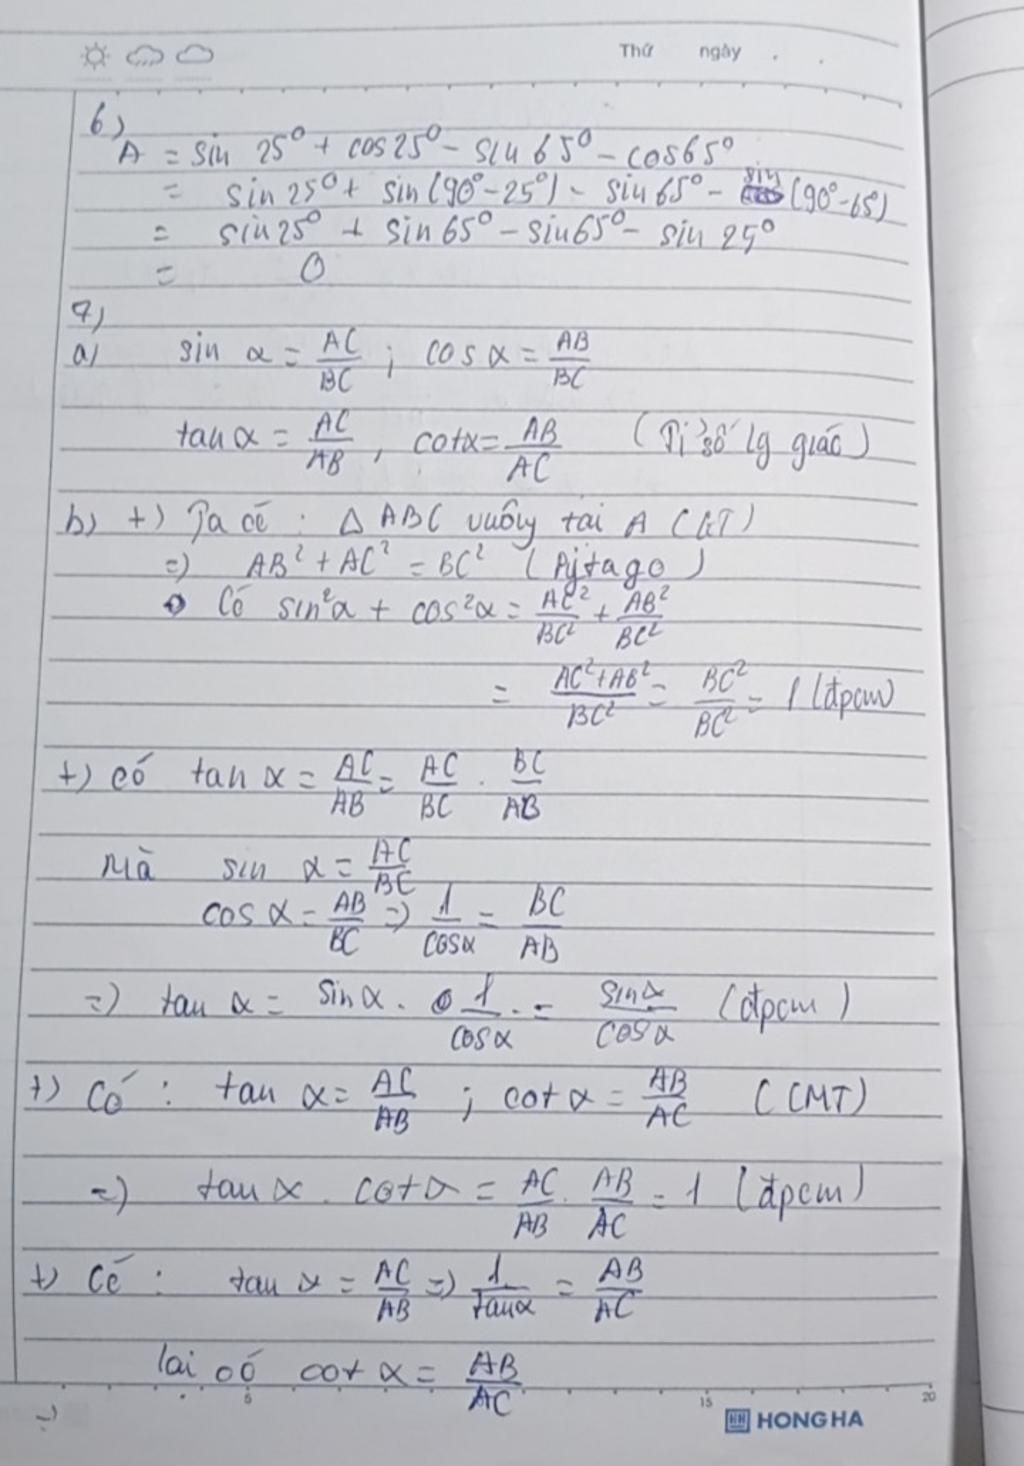 Thứ ngày . .
6)
A = sin 25° + cos25° - sin 65° - cos65°
= sin 25° + sin (90° - 25°) - sin 65° - sin (90° - 65°)
= sin 25° + sin 65° - sin 65° - sin 25°
= 0
7)
a) sin α = AC/BC ; cos α = AB/BC
tan α = AC/AB , cotα = AB/AC (Tỉ số lg giác)
b) +) Ta có : Δ ABC vuông tại A (GT)
=) AB² + AC² = BC² (Pytago)
Có sin²α + cos²α = AC²/BC² + AB²/BC²
= AC²+AB²/BC² = BC²/BC² = 1 (đpcm)
+) có tan α = AC/AB = AC/BC . BC/AB
Mà sin α = AC/BC
cos α = AB/BC =) 1/cosα = BC/AB
=) tan α = sin α . 1/cosα . = sinα/cosα (đpcm)
+) Có : tan α = AC/AB ; cot α = AB/AC (CMT)
=) tan α . cot α = AC/AB . AB/AC = 1 (đpcm)
+) Có : tan α = AC/AB =) 1/tanα = AB/AC
lại có cot α = AB/AC
=)
5 15 20
HH HONG HA